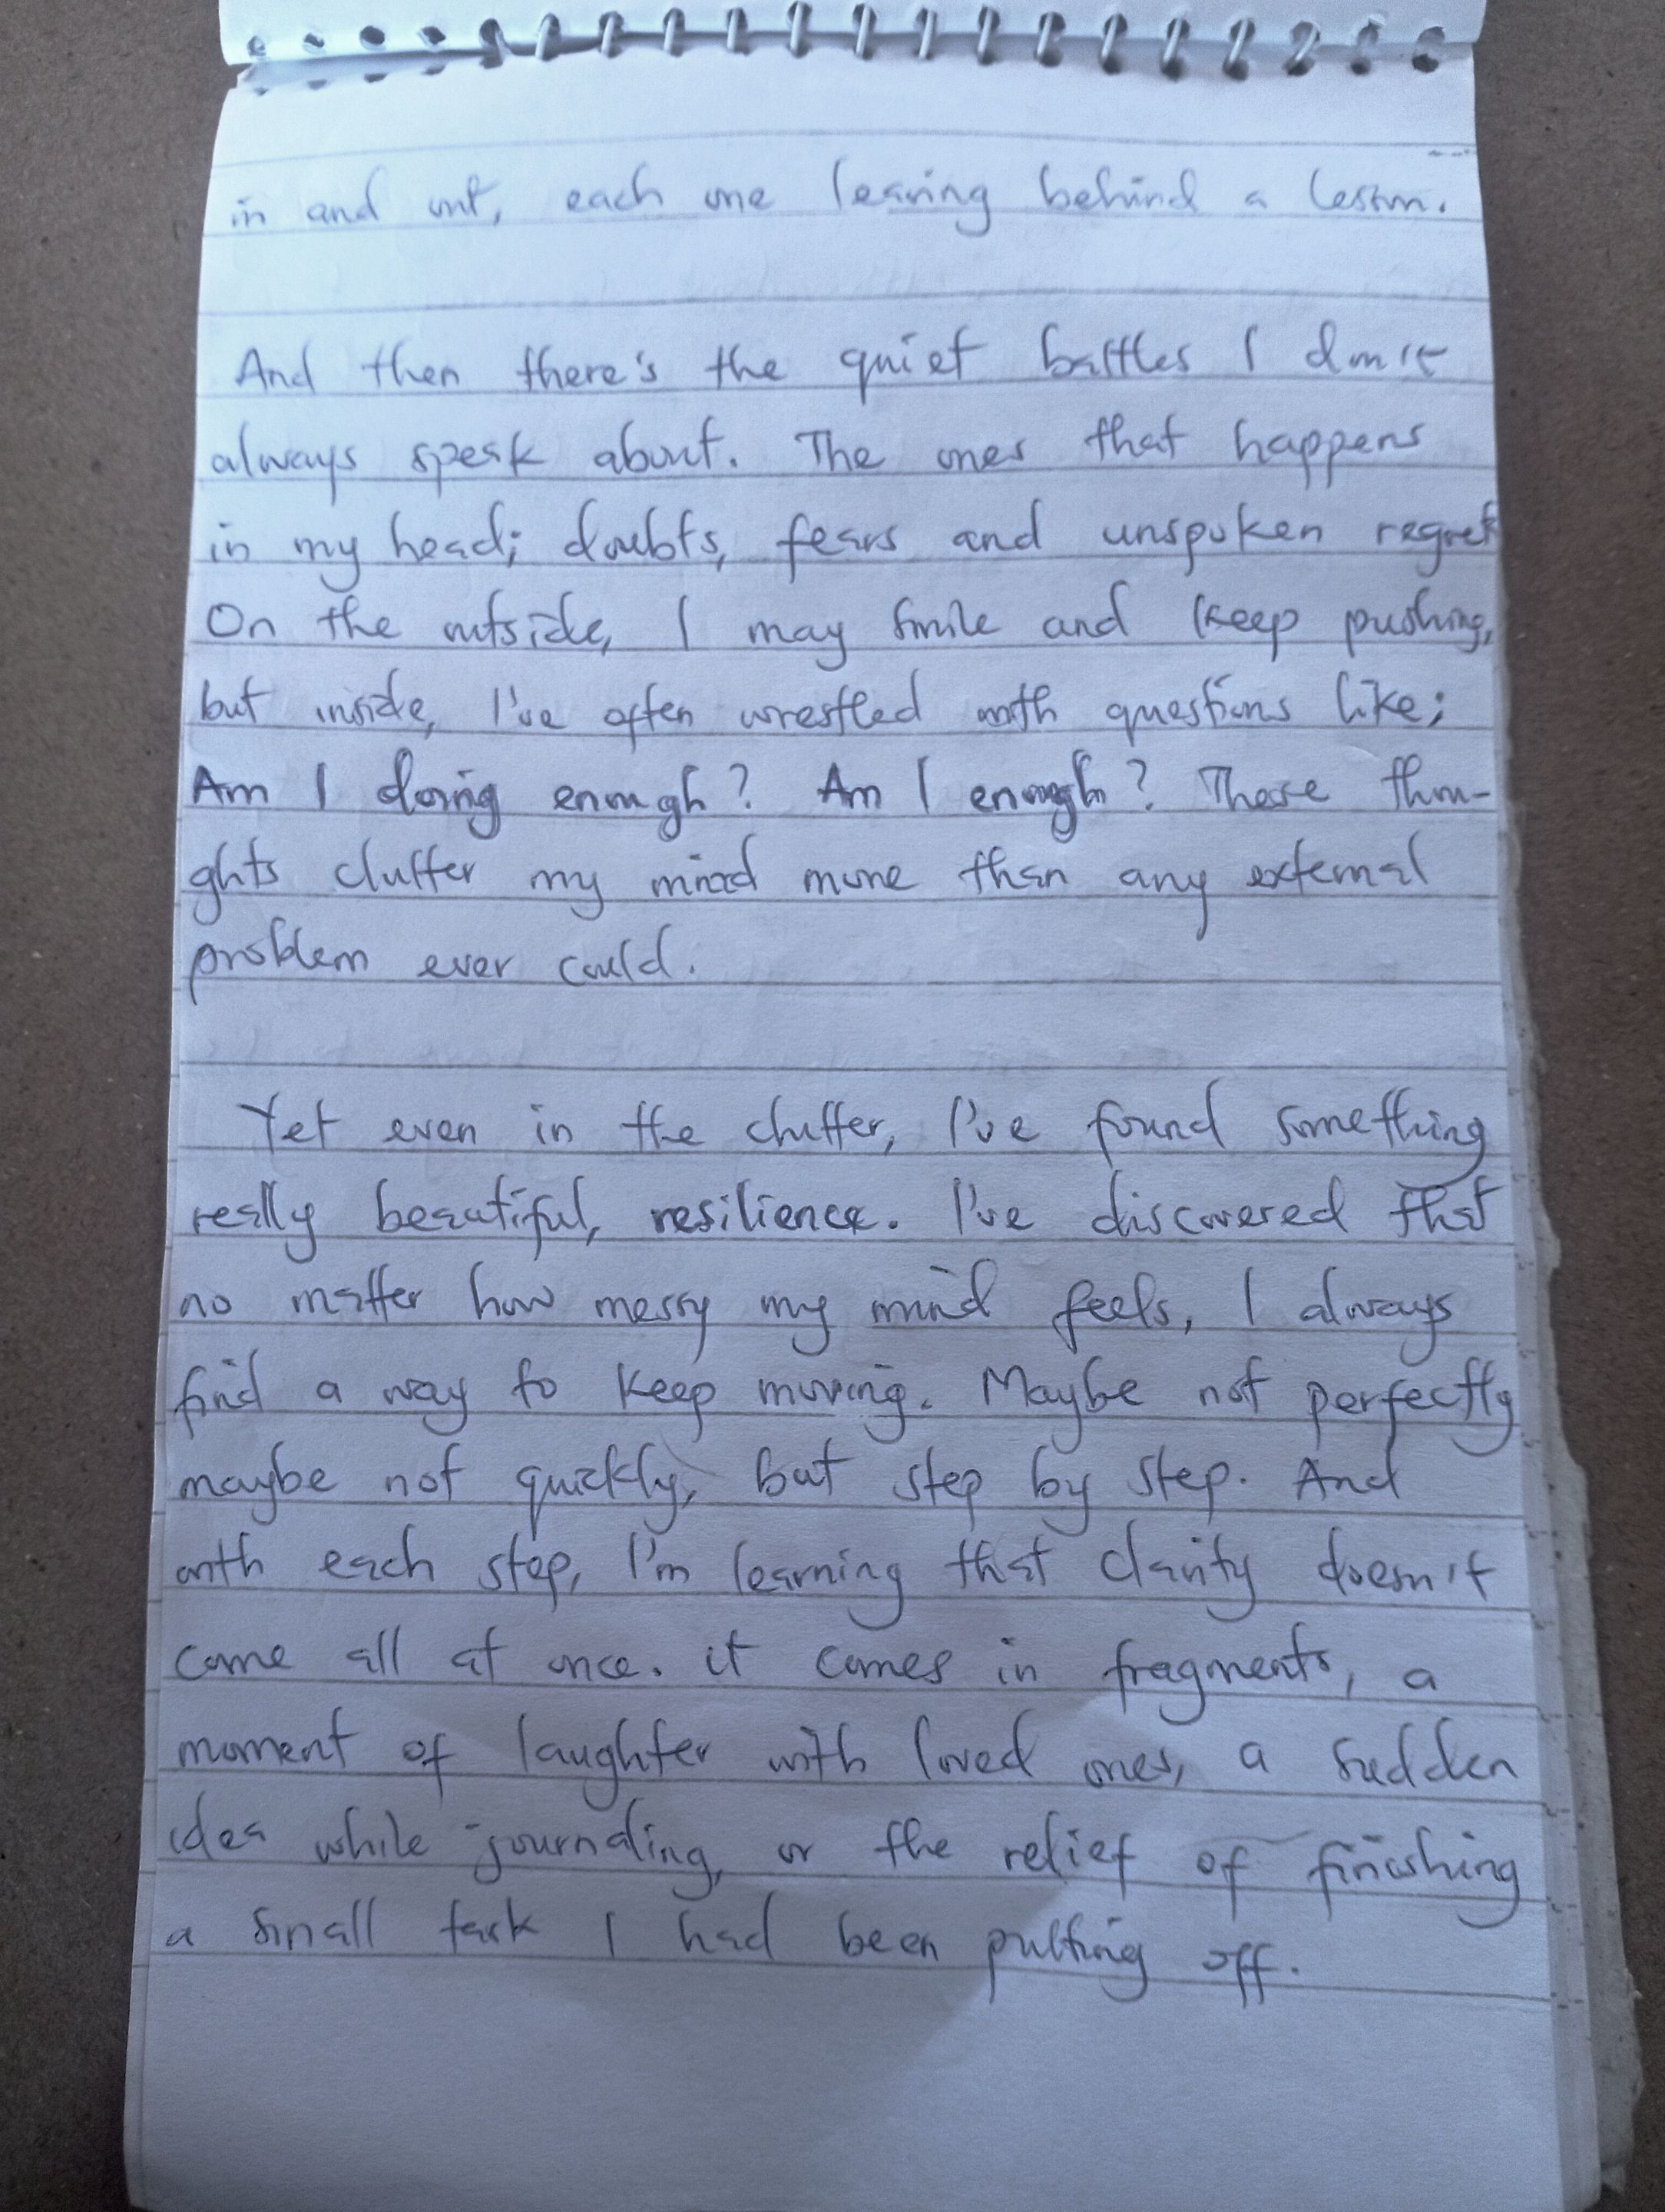 in and out, each one leaving behind a lesson.
And then there's the quiet battles I don't
always speak about. The ones that happens
in my head; doubts, fears and unspoken regret
On the outside, I may smile and keep pushing,
but inside, I've often wrestled with questions like;
Am I doing enough? Am I enough? These thou-
ghts clutter my mind more than any external
problem ever could.
Yet even in the clutter, I've found something
really beautiful, resilience. I've discovered that
no matter how messy my mind feels, I always
find a way to keep moving. Maybe not perfectly
maybe not quickly, but step by step. And
with each step, I'm learning that clarity doesn't
come all at once. it comes in fragments, a
moment of laughter with loved ones, a sudden
idea while journaling, or the relief of finishing
a small task I had been putting off.